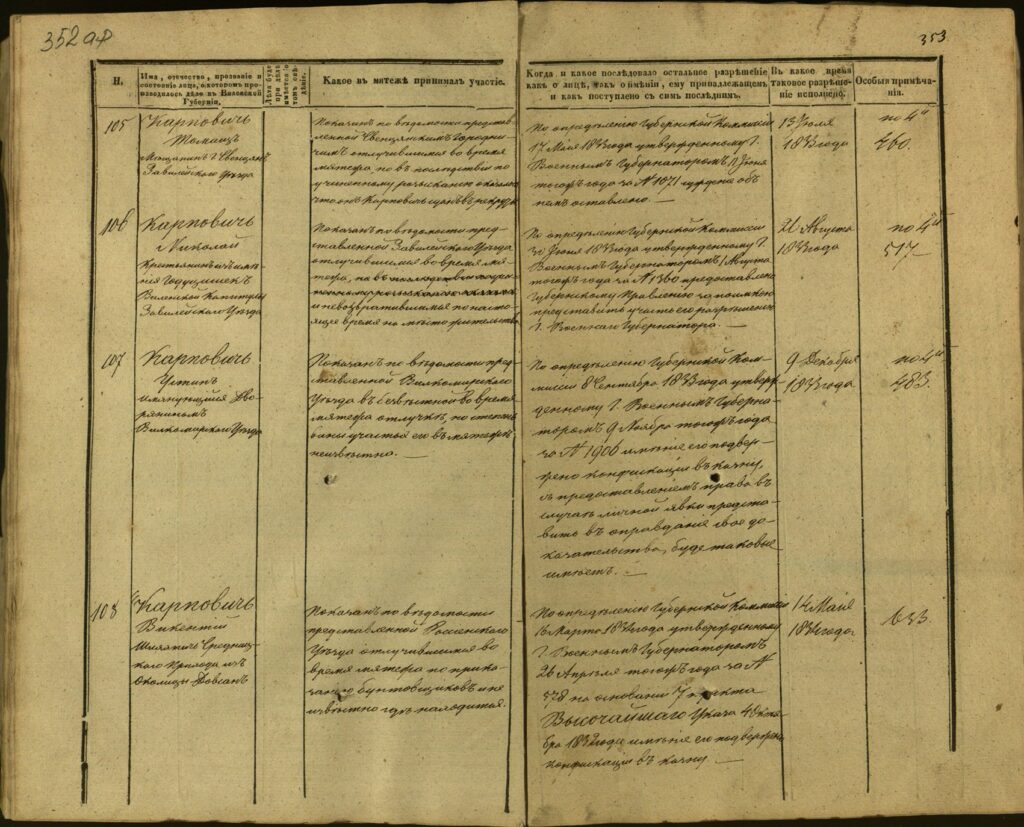 352 аф
353
Н.
Имя, отчество, прозваніе и
состояніе лица, о которомъ про-
изводилось дѣло въ Виленской
Губерніи.
Какое въ мятежѣ принималъ участіе.
Когда и какое послѣдовало остальное разрѣшеніе
какъ о лицѣ, такъ о имѣніи, ему принадлежащемъ
и какъ поступлено съ симъ послѣднимъ.
Въ какое время
таковое разрѣше-
ніе исполнено.
Особыя примѣча-
нія.
105
Карповичъ
Томашъ
Мѣщанинъ г. Свенцянъ
Завилейскаго уѣзда
Показанъ по вѣдомости представ-
ленной Свенцянскимъ Городни-
чимъ отлучившимся во время
мятежа, но въ послѣдствіи по
учиненному розысканію оказалось
что онъ Карповичъ
По опредѣленію Губернской Коммисіи
17 Мая 1833 года утвержденному Г.
Военнымъ Губернаторомъ Іюня
тогожъ года за № 1071 сужденіе объ
немъ оставлено.
13 Іюля
1833 года
по 4й
260.
106
Карповичъ
Николай
Крестьянинъ изъ имѣ-
нія Годуцишекъ
Виленской Капитулы
Завилейскаго Уѣзда
Показанъ по вѣдомости пред-
ставленной Завилейскаго Уѣзда
отлучившимся во время мя-
тежа,
и невозвратившимся по насто-
ящее время на мѣсто жительства
По опредѣленію Губернской Коммисіи
30 Іюня 1833 года утвержденному Г.
Военнымъ Губернаторомъ 1 Августа
тогожъ года за № 1360 предоставлено
Губернскому Правленію за поимкою
представить участь его разрѣшенію
Г. Военнаго Губернатора.
21 Августа
1833 года
по 4й
517
107
Карповичъ
Устинъ
имянующійся Дво-
ряниномъ
Вилкомирскаго Уѣзда
Показанъ по вѣдомости пред-
ставленной Вилкомирскаго
Уѣзда въ безвѣстной во время
мятежа отлучкѣ, но степень
участія его въ мятежѣ
неизвѣстна.
По опредѣленію Губернской Ком-
мисіи 8 Сентября 1833 года утверж-
денному Г. Военнымъ Губерна-
торомъ 9 Ноября тогожъ года
за № 1906 имѣніе его подвер-
жено конфискаціи въ казну,
съ предоставленіемъ права въ
случаѣ личной явки предста-
вить въ оправданіе свое до-
казательства, буде таковые
имѣетъ.
9 Декабря
1833 года
по 4й
483.
108
Карповичъ
Викентій
Шляхтичъ Средниц-
каго Прихода изъ
Околицы Довсанъ
Показанъ по вѣдомости
представленной Россіенскаго
Уѣзда отлучившимся во
время мятежа по прика-
занію бунтовщиковъ и не
извѣстно гдѣ находится.
По опредѣленію Губернской Коммисіи
16 Марта 1834 года утвержденному
Г. Военнымъ Губернаторомъ
26 Апрѣля тогожъ года за №
578 на основаніи 7 пункта
Высочайшаго Указа 4 Октя-
бря 1832 года имѣніе его подвержено
конфискаціи въ казну.
14 Маія
1834 года.
633.